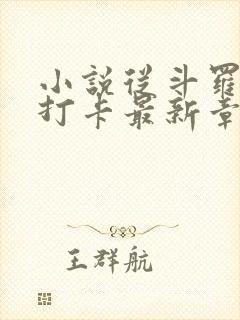 小說從斗羅
打卡最新章
王群航